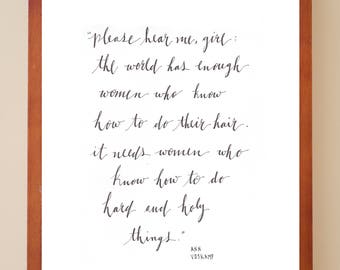 "please hear me, girl:
the world has enough
women who know
how to do their hair.
it needs women who
know how to do
hard and holy
things."
ANN
VOSKAMP